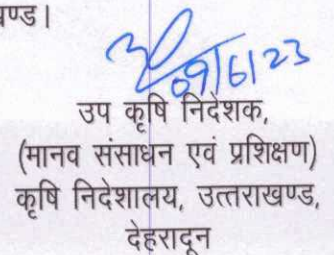 ण्ड।
09/6/23
उप कृषि निदेशक,
(मानव संसाधन एवं प्रशिक्षण)
कृषि निदेशालय, उत्तराखण्ड,
देहरादून